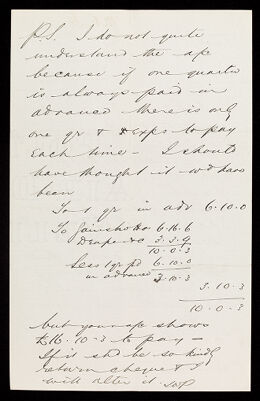 P.S. I do not quite
understand the a/c
because if one quarter
is always paid in
advance there is only
one qr & exps to pay
each time - I should
have thought it wd have
been
To 1 qr in adv 6.10.0
To Gainsboro 6.16.6
Drapers 3.3.9
10.0.3
Less 1 qr pd 6.10.0
in advance 3.10.3
3.10.3
10.0.3
but your a/c shows
£16.10.3 to pay -
If it shd be so kindly
return cheque & I
will alter it